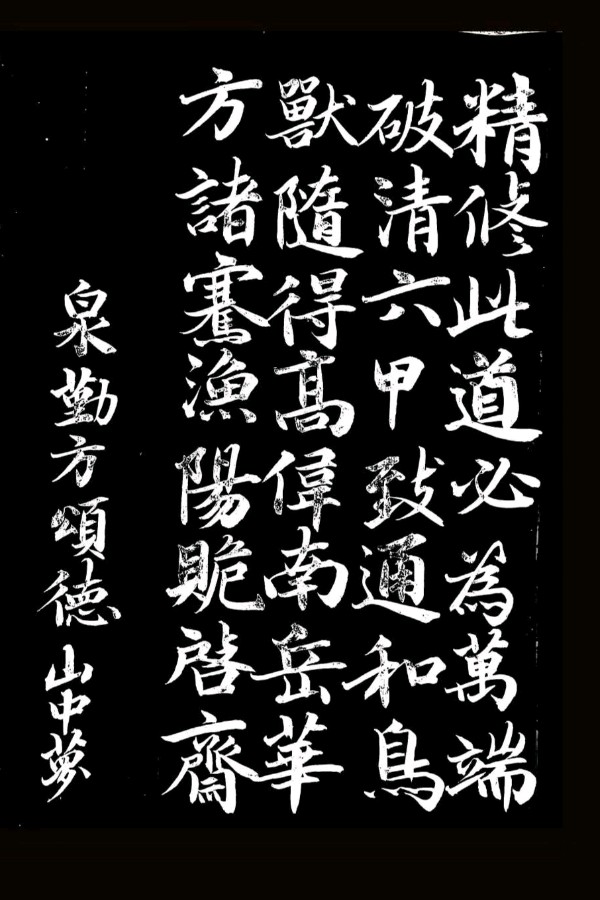 精修此道必為萬端
破清六甲致通和鳥
獸隨得高偉南岳華
方諸騫漁陽賜啓齋
泉勤方頌德山中夢